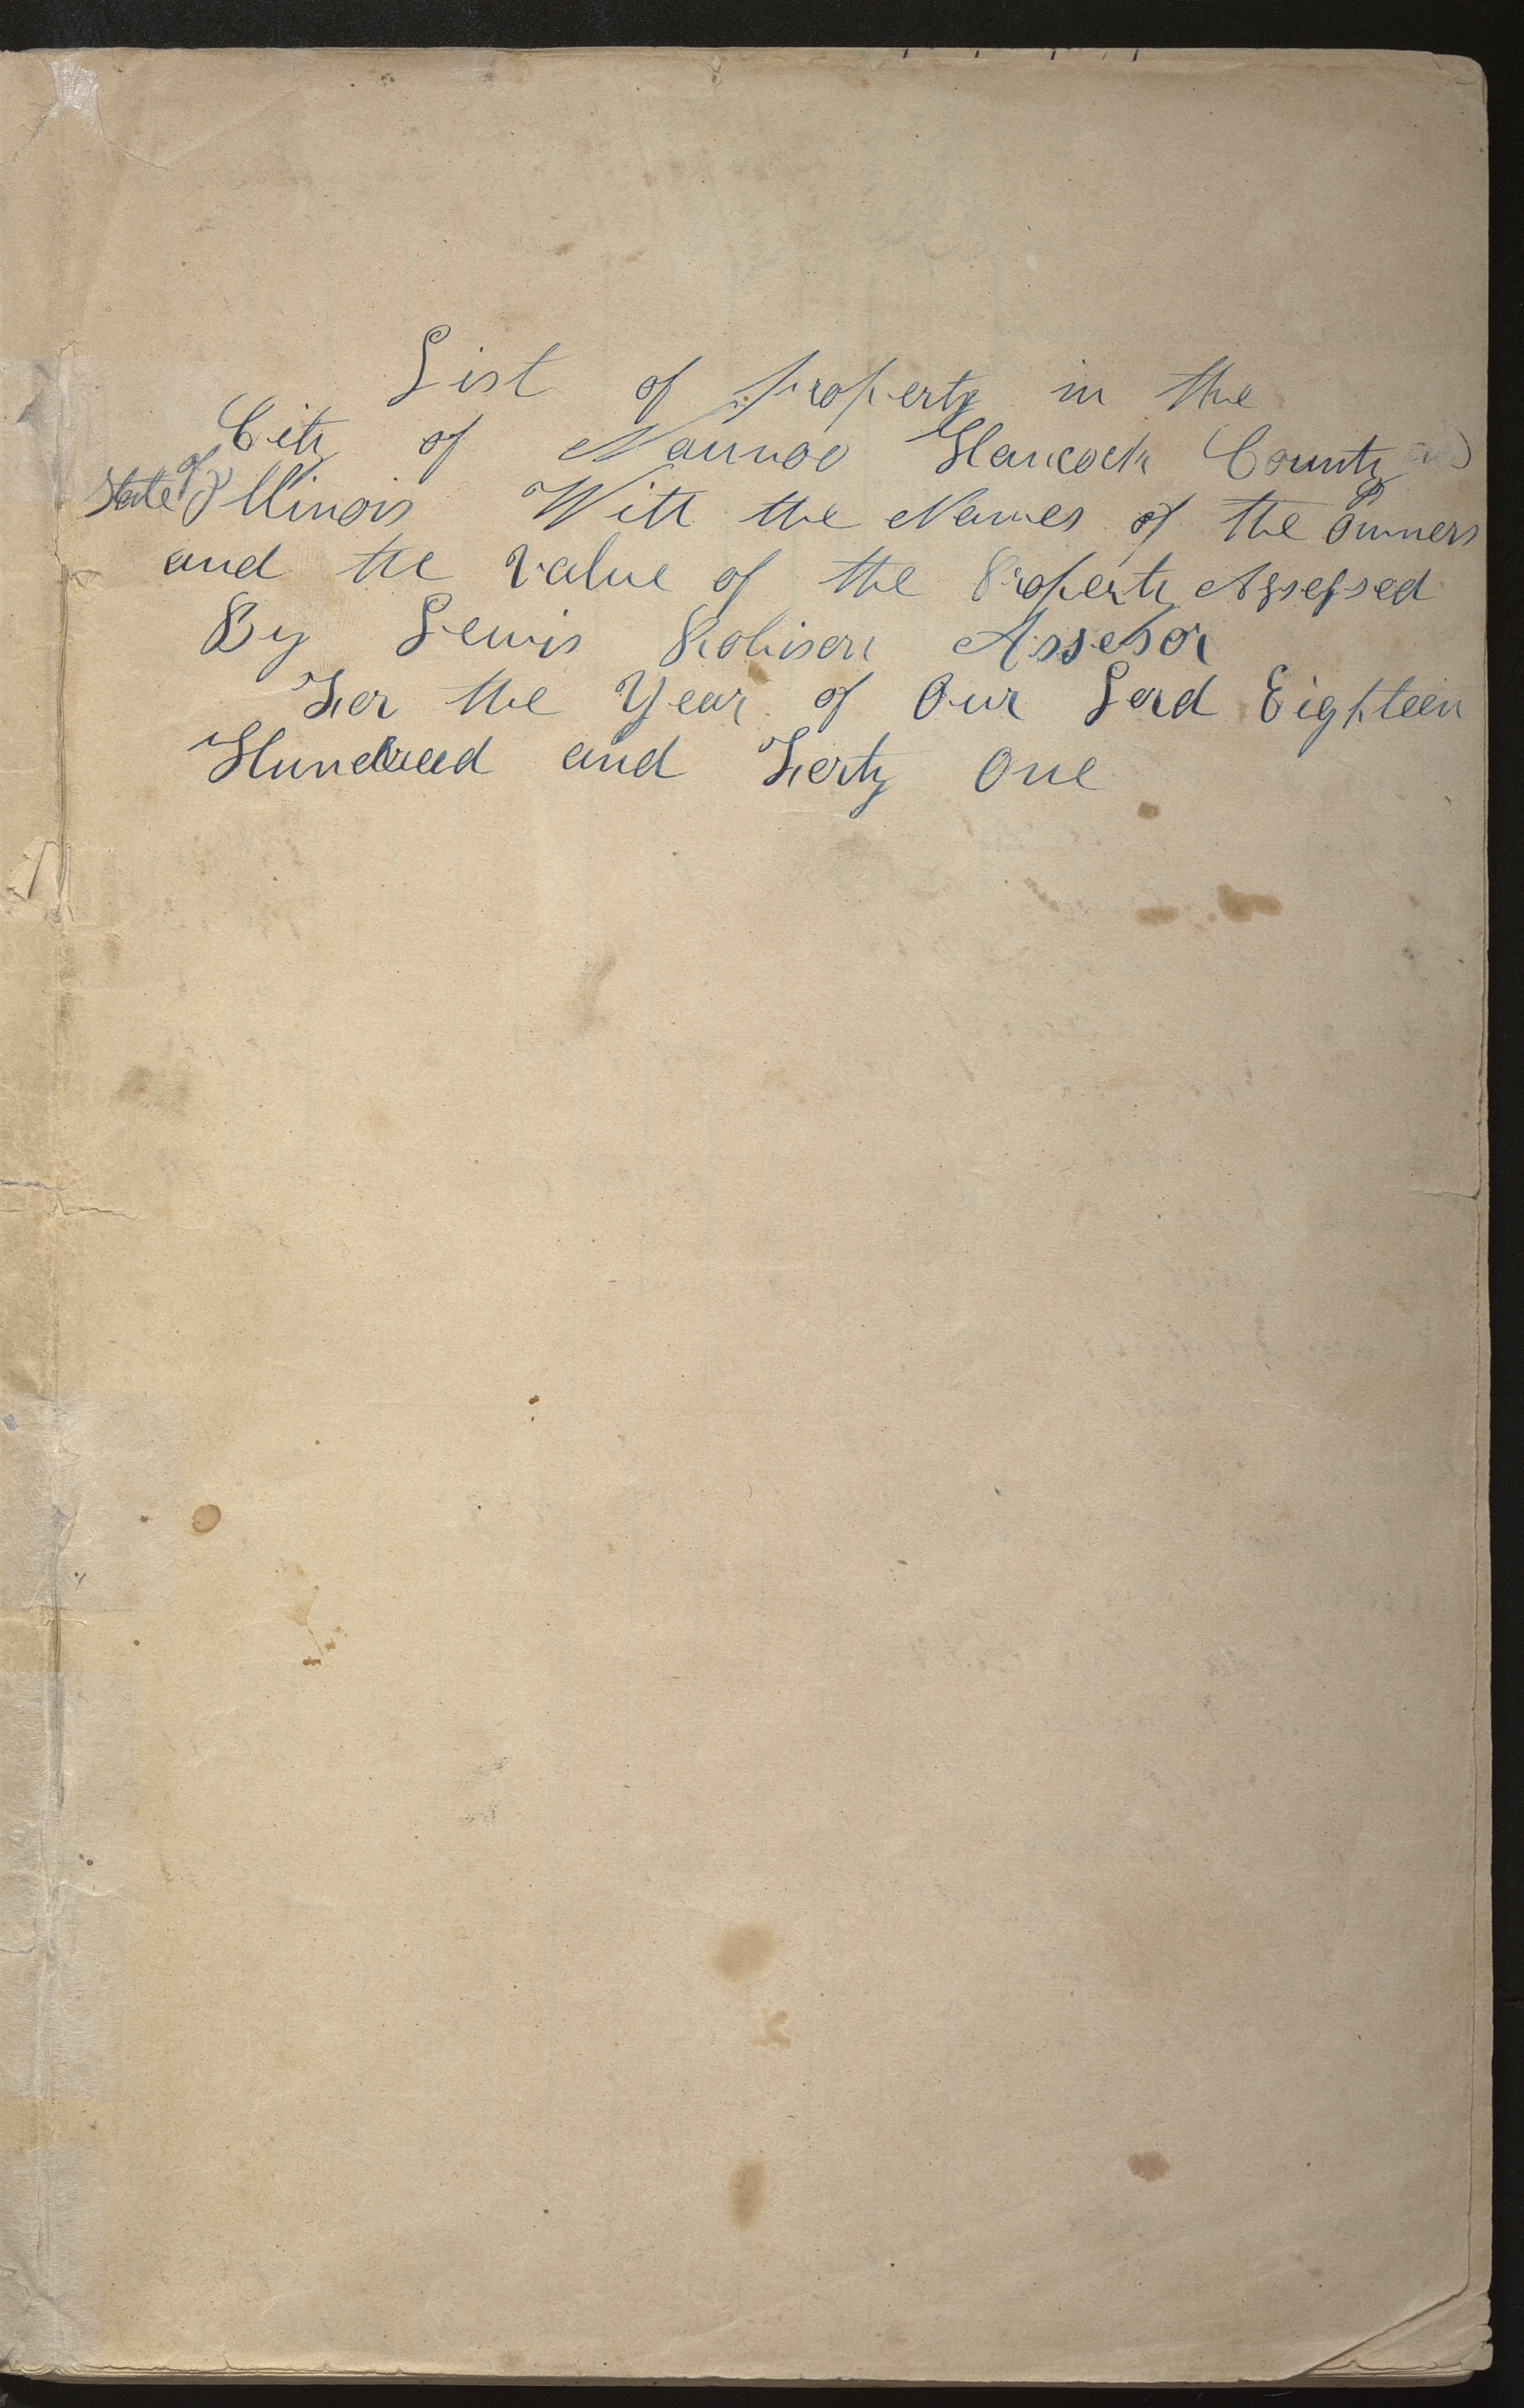 List of property in the
City of Nauvoo Hancock County and
State of Illinois With the Names of the owners
and the value of the Property Assessed
By Lewis Robison Assesor
For the Year of Our Lord Eighteen
Hundread and Forty One